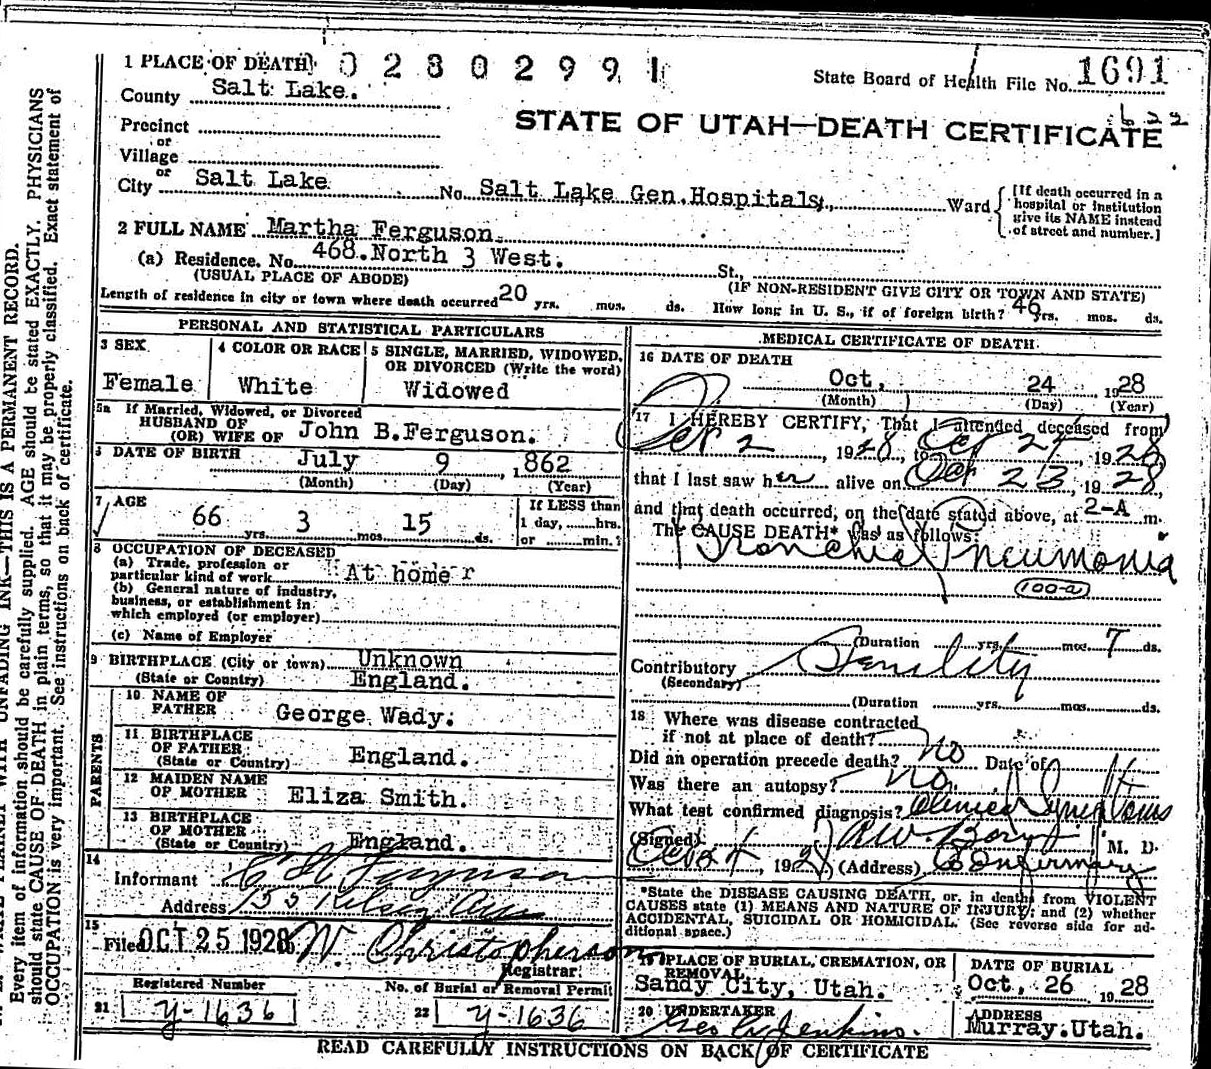 1 PLACE OF DEATH 02802991
State Board of Health File No. 1691
County Salt Lake.
622
STATE OF UTAH—DEATH CERTIFICATE
Precinct
or
Village
or
City Salt Lake No. Salt Lake Gen.Hospital, Ward
[If death occurred in a
hospital or institution
give its NAME instead
of street and number.]
2 FULL NAME Martha Ferguson.
(a) Residence. No. 468.North 3 West. St.,
(USUAL PLACE OF ABODE) (IF NON-RESIDENT GIVE CITY OR TOWN AND STATE)
Length of residence in city or town where death occurred 20 yrs. mos. ds. How long in U. S., if of foreign birth? 46 yrs. mos. ds.
PERSONAL AND STATISTICAL PARTICULARS
3 SEX
Female
4 COLOR OR RACE
White
5 SINGLE, MARRIED, WIDOWED,
OR DIVORCED (Write the word)
Widowed
5a If Married, Widowed, or Divorced
HUSBAND OF
(OR) WIFE OF John B.Ferguson.
DATE OF BIRTH July 9 1862
(Month) (Day) (Year)
7 AGE
66 yrs. 3 mos. 15 ds.
If LESS than
1 day, hrs.
or min.?
8 OCCUPATION OF DECEASED
(a) Trade, profession or
particular kind of work At home
(b) General nature of industry,
business, or establishment in
which employed (or employer)
(c) Name of Employer
9 BIRTHPLACE (City or town) Unknown
(State or Country) England.
PARENTS
10 NAME OF
FATHER George Wady.
11 BIRTHPLACE
OF FATHER
(State or Country) England.
12 MAIDEN NAME
OF MOTHER Eliza Smith.
13 BIRTHPLACE
OF MOTHER
(State or Country) England.
14
Informant Ferguson
Address 155 Kelsey Ave
15
Filed OCT 25 1928 W. Christopherson
Registrar.
Registered Number
21 y-1636
No. of Burial or Removal Permit
22 y-1636
MEDICAL CERTIFICATE OF DEATH
16 DATE OF DEATH
Oct, 24 1928
(Month) (Day) (Year)
17 I HEREBY CERTIFY, That I attended deceased from
Oct 2, 1928, to Oct 24, 1928
that I last saw her alive on Oct 23, 1928,
and that death occurred, on the date stated above, at 2-A m.
The CAUSE DEATH* was as follows:
Bronchial Pneumonia
100-a
(Duration yrs. mos. 7 ds.
Contributory Senility
(Secondary)
(Duration yrs. mos. ds.
18 Where was disease contracted
if not at place of death?
Did an operation precede death? no Date of
Was there an autopsy? no.
What test confirmed diagnosis? Clinical Symptoms
(Signed) M. D.
Oct 24, 1928 (Address) Co Infirmary
*State the DISEASE CAUSING DEATH, or, in deaths from VIOLENT
CAUSES state (1) MEANS AND NATURE OF INJURY; and (2) whether
ACCIDENTAL, SUICIDAL OR HOMICIDAL. (See reverse side for ad-
ditional space.)
19 PLACE OF BURIAL, CREMATION, OR
REMOVAL
Sandy City, Utah.
DATE OF BURIAL
Oct, 26 1928
20 UNDERTAKER
Jenkins.
ADDRESS
Murray.Utah.
READ CAREFULLY INSTRUCTIONS ON BACK OF CERTIFICATE
WRITE PLAINLY WITH UNFADING INK—THIS IS A PERMANENT RECORD.
Every item of information should be carefully supplied. AGE should be stated EXACTLY. PHYSICIANS
should state CAUSE OF DEATH in plain terms, so that it may be properly classified. Exact statement of
OCCUPATION is very important. See instructions on back of certificate.